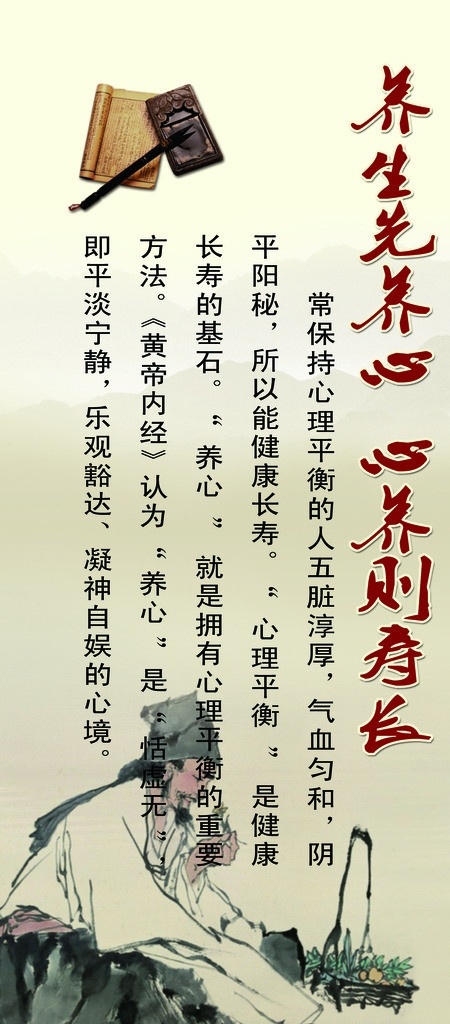 养生先养心 心养则寿长
常保持心理平衡的人五脏淳厚，气血匀和，阴
平阳秘，所以能健康长寿。“心理平衡”是健康
长寿的基石。“养心”就是拥有心理平衡的重要
方法。《黄帝内经》认为“养心”是“恬虚无”，
即平淡宁静，乐观豁达、凝神自娱的心境。